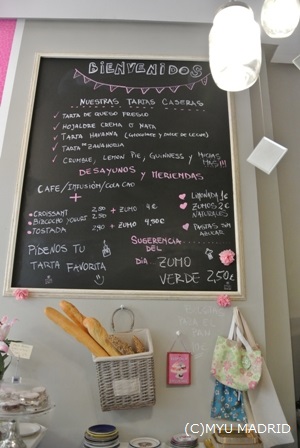 BIENVENIDOS
NUESTRAS TARTAS CASERAS
✓ TARTA DE QUESO FRESCO
✓ HOJALDRE CREMA O NATA
✓ TARTA HAVANNA (CHOCOLATE Y DULCE DE LECHE)
✓ TARTA DE ZANAHORIA
✓ CRUMBLE, LEMON PIE, GUINNESS Y MUCHAS MAS!!!
DESAYUNOS Y MERIENDAS
CAFÉ/INFUSIÓN/COLA CAO
+
CROISSANT 2,50 + ZUMO 4€
BIZCOCHO YOGURT 2,50 + ZUMO 4,50€
TOSTADA 2,90 + ZUMO
♥ LIMONADA 1€
♥ ZUMOS 2€
NATURALES
♥ TARTAS SIN
AZUCAR
PIDENOS TU
TARTA FAVORITA
SUGERENCIA
DEL
DIA ZUMO
VERDE 2,50€
(C)MYU MADRID